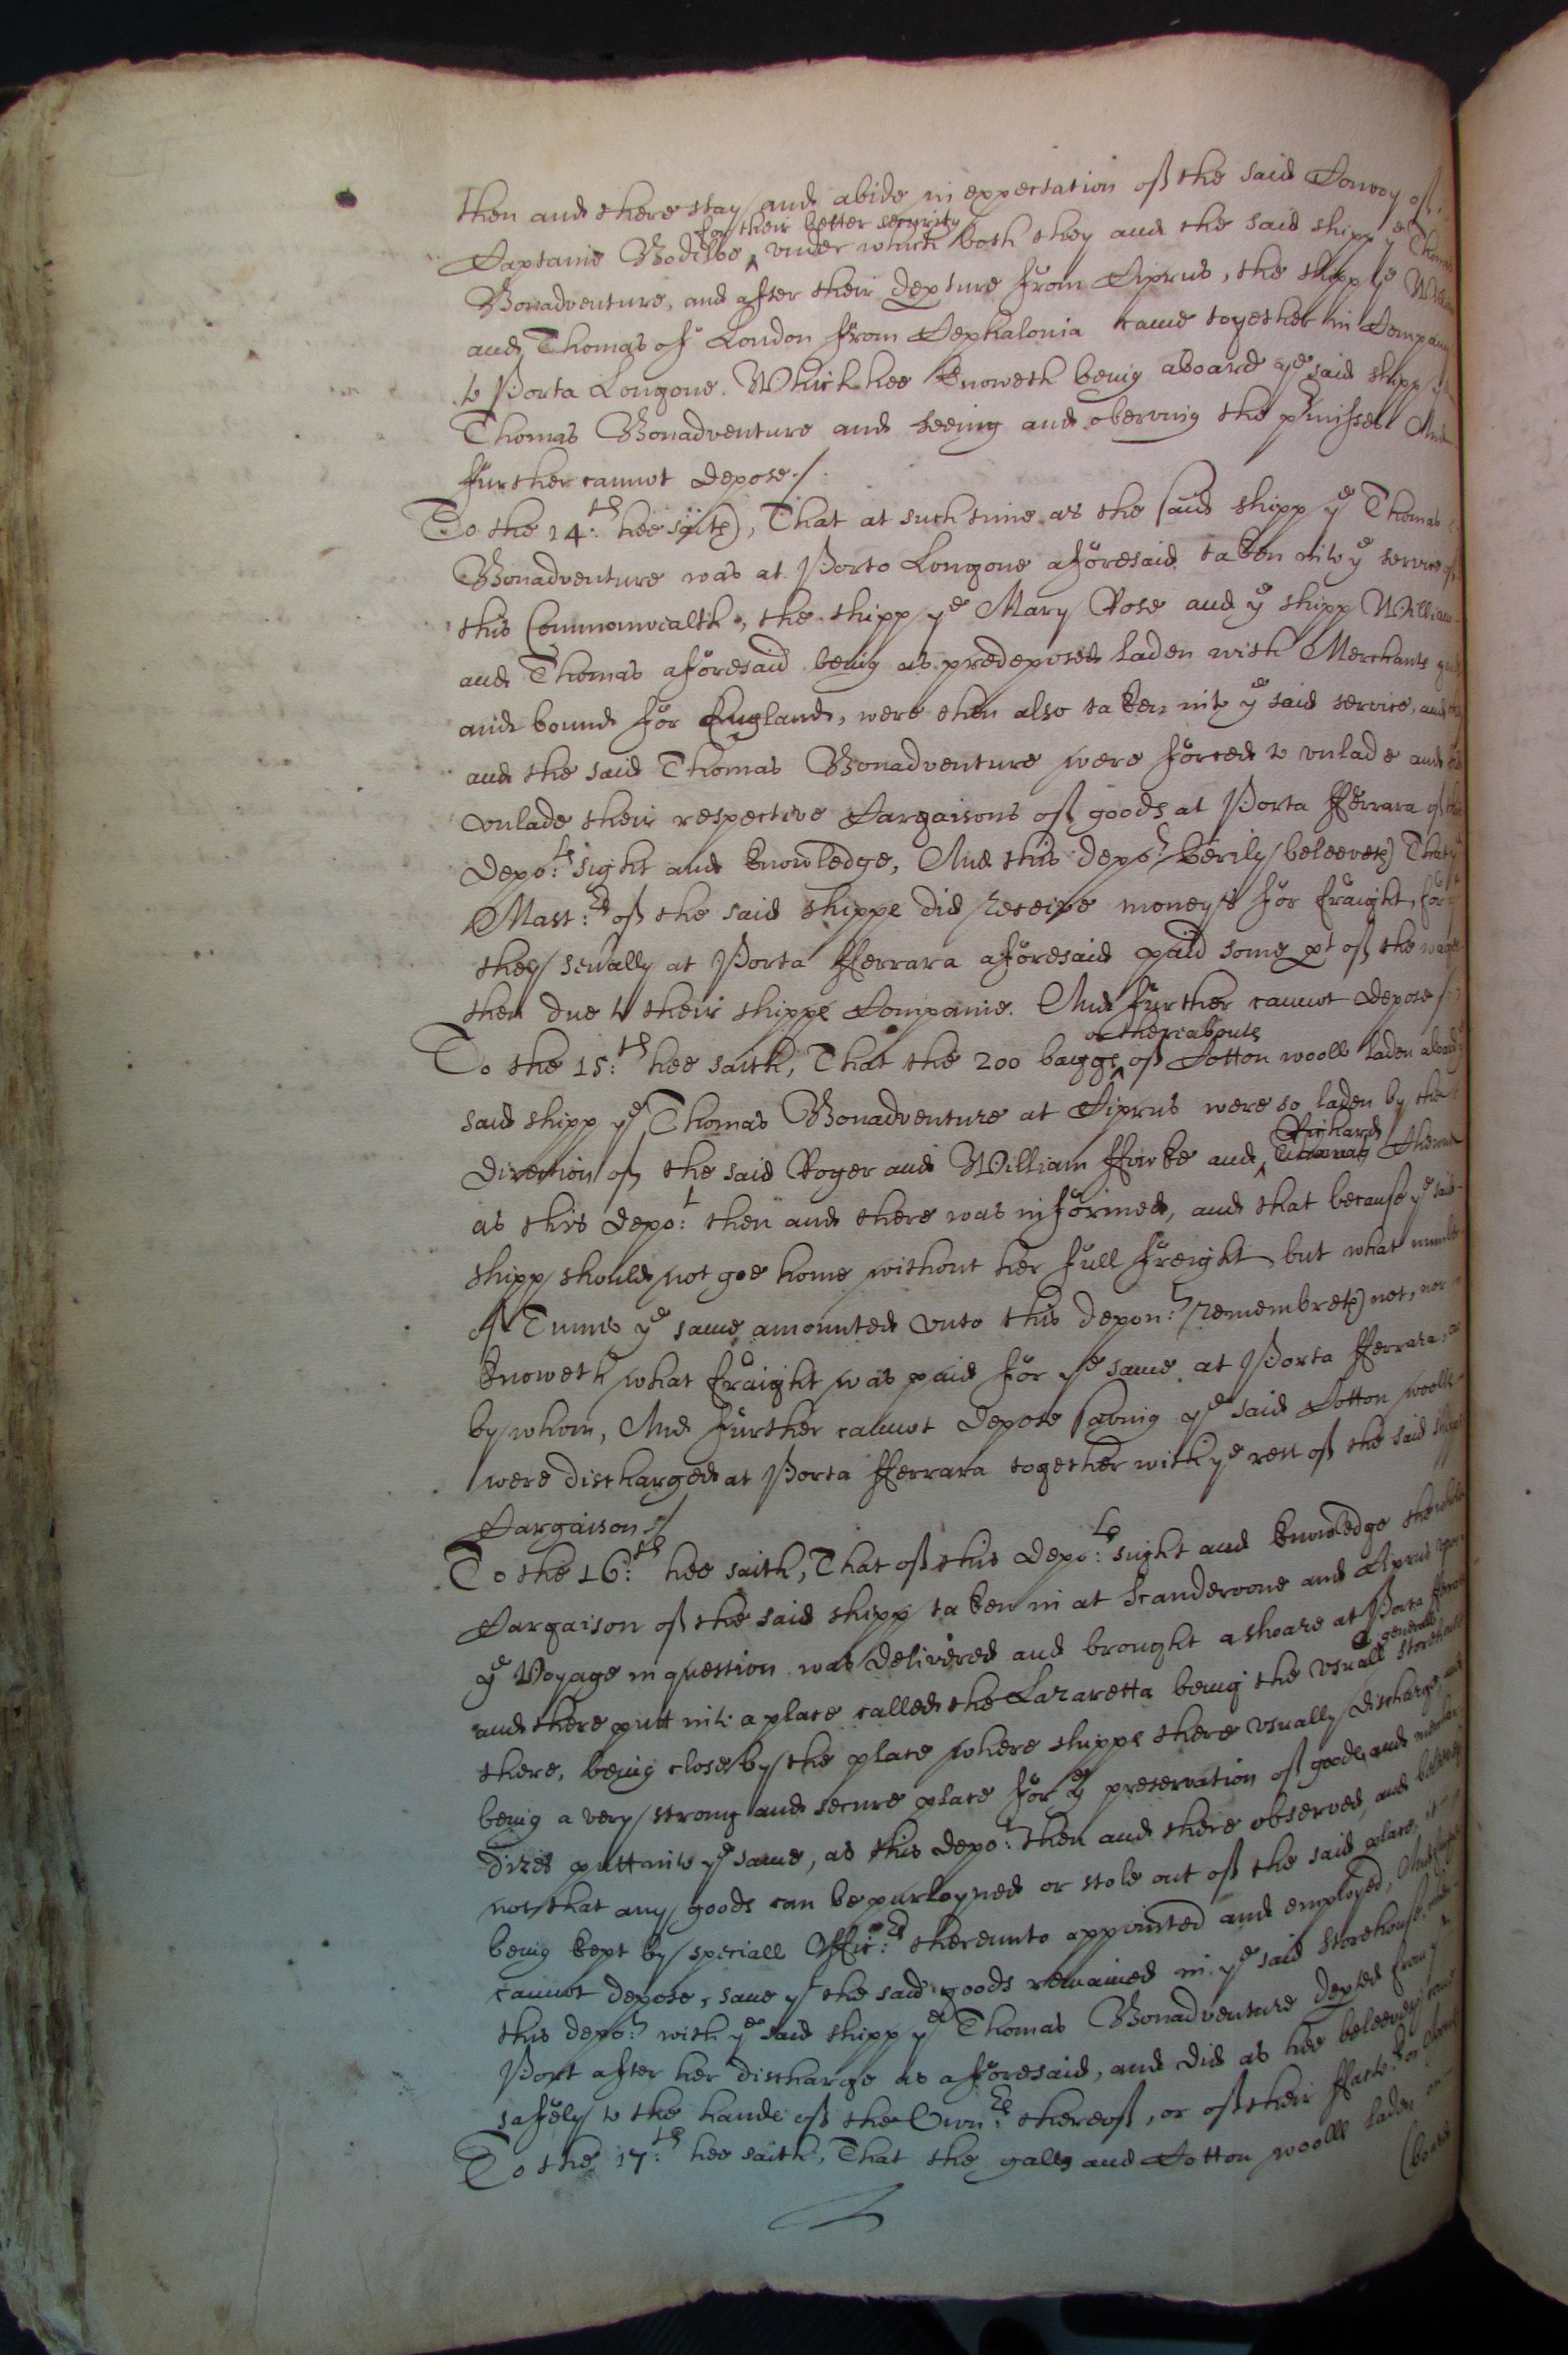 then and there stay and abide in expectation of the said Convoy of
for their better security
Captaine Bodiloe, under which both they and the said shipp ye Thomas
Bonadventure, and after their depture from Ciprus, the shipp ye William
and Thomas of London from Cephalonia came together in Company
to Porta Longone. Which hee knoweth being aboard ye said shipp ye
Thomas Bonadventure and seeing and oberving the pmisses And
further cannot depose./.
To the 14:th hee saith, That at such time as the said shipp ye Thomas
Bonadventure was at Porto Longone aforesaid taken into ye service of
this Commonwealth, the shipp ye Mary Rose and ye shipp William
and Thomas aforesaid being as predeposed laden with Merchants
and bound for England, were then also taken into ye said service, and
and the said Thomas Bonadventure were forced to unlade and did
unlade their respective Cargaisons of goods at Porta fferrara of this
depo:ts sight and knowledge, And this depo:t verily beleeveth That ye
Mast:rs of the said shipps did receive moneys for fraight, for
they sevally at Porta fferrara aforesaid paid some pt of the wages
then due to their shipps Companie. And further cannot depose./
or thereabouts
To the 15:th hee saith, That the 200 baggs of Cotton wooll laden aboard ye
said shipp ye Thomas Bonadventure at Ciprus were so laden by the
Richard
direction of the said Roger and William ffowke and Thomas
as this depo:t then and there was informed, and that because ye said
shipp should not goe home without her full freight but what number
of Tunns ye same amounted unto this depon:t remembreth not, nor
knoweth what fraight was paid for ye same at Porta fferrara, or
by whom, And further cannot depose saving ye said Cotton woolls
were discharged at Porta fferrara together with ye rest of the said shipps
Cargaison./
To the 16:th hee saith, That of this depo:ts sight and knowledge the whole
Cargaison of the said shipp taken in at Scanderoone and Ciprus
ye Voyage in question was delivered and brought ashoare at Porta fferrara
& generall
and there putt into a place called the Lazaretta being the usuall storehouse
there, being close by the place where shipps there usually discharge, and
being a very strong and secure place for ye preservation of goods and merchan
dizes putt into ye same, as this depo:t then and there observed, and beleeveth
not that any goods can be purloyned or stole out of the said place, it
being kept by speciall Offic:rs thereunto appointed and employed, And further
cannot depose, save yt the said goods remained in ye said Storehouse, when
this depo:t with ye said shipp ye Thomas Bonadventure depted from ye
Port after her discharge as aforesaid, and did as hee beleeveth come
safely to the hands of the Own:rs thereof, or of their
To the 17:th hee saith, That the galls and Cotton wooll laden on
(board